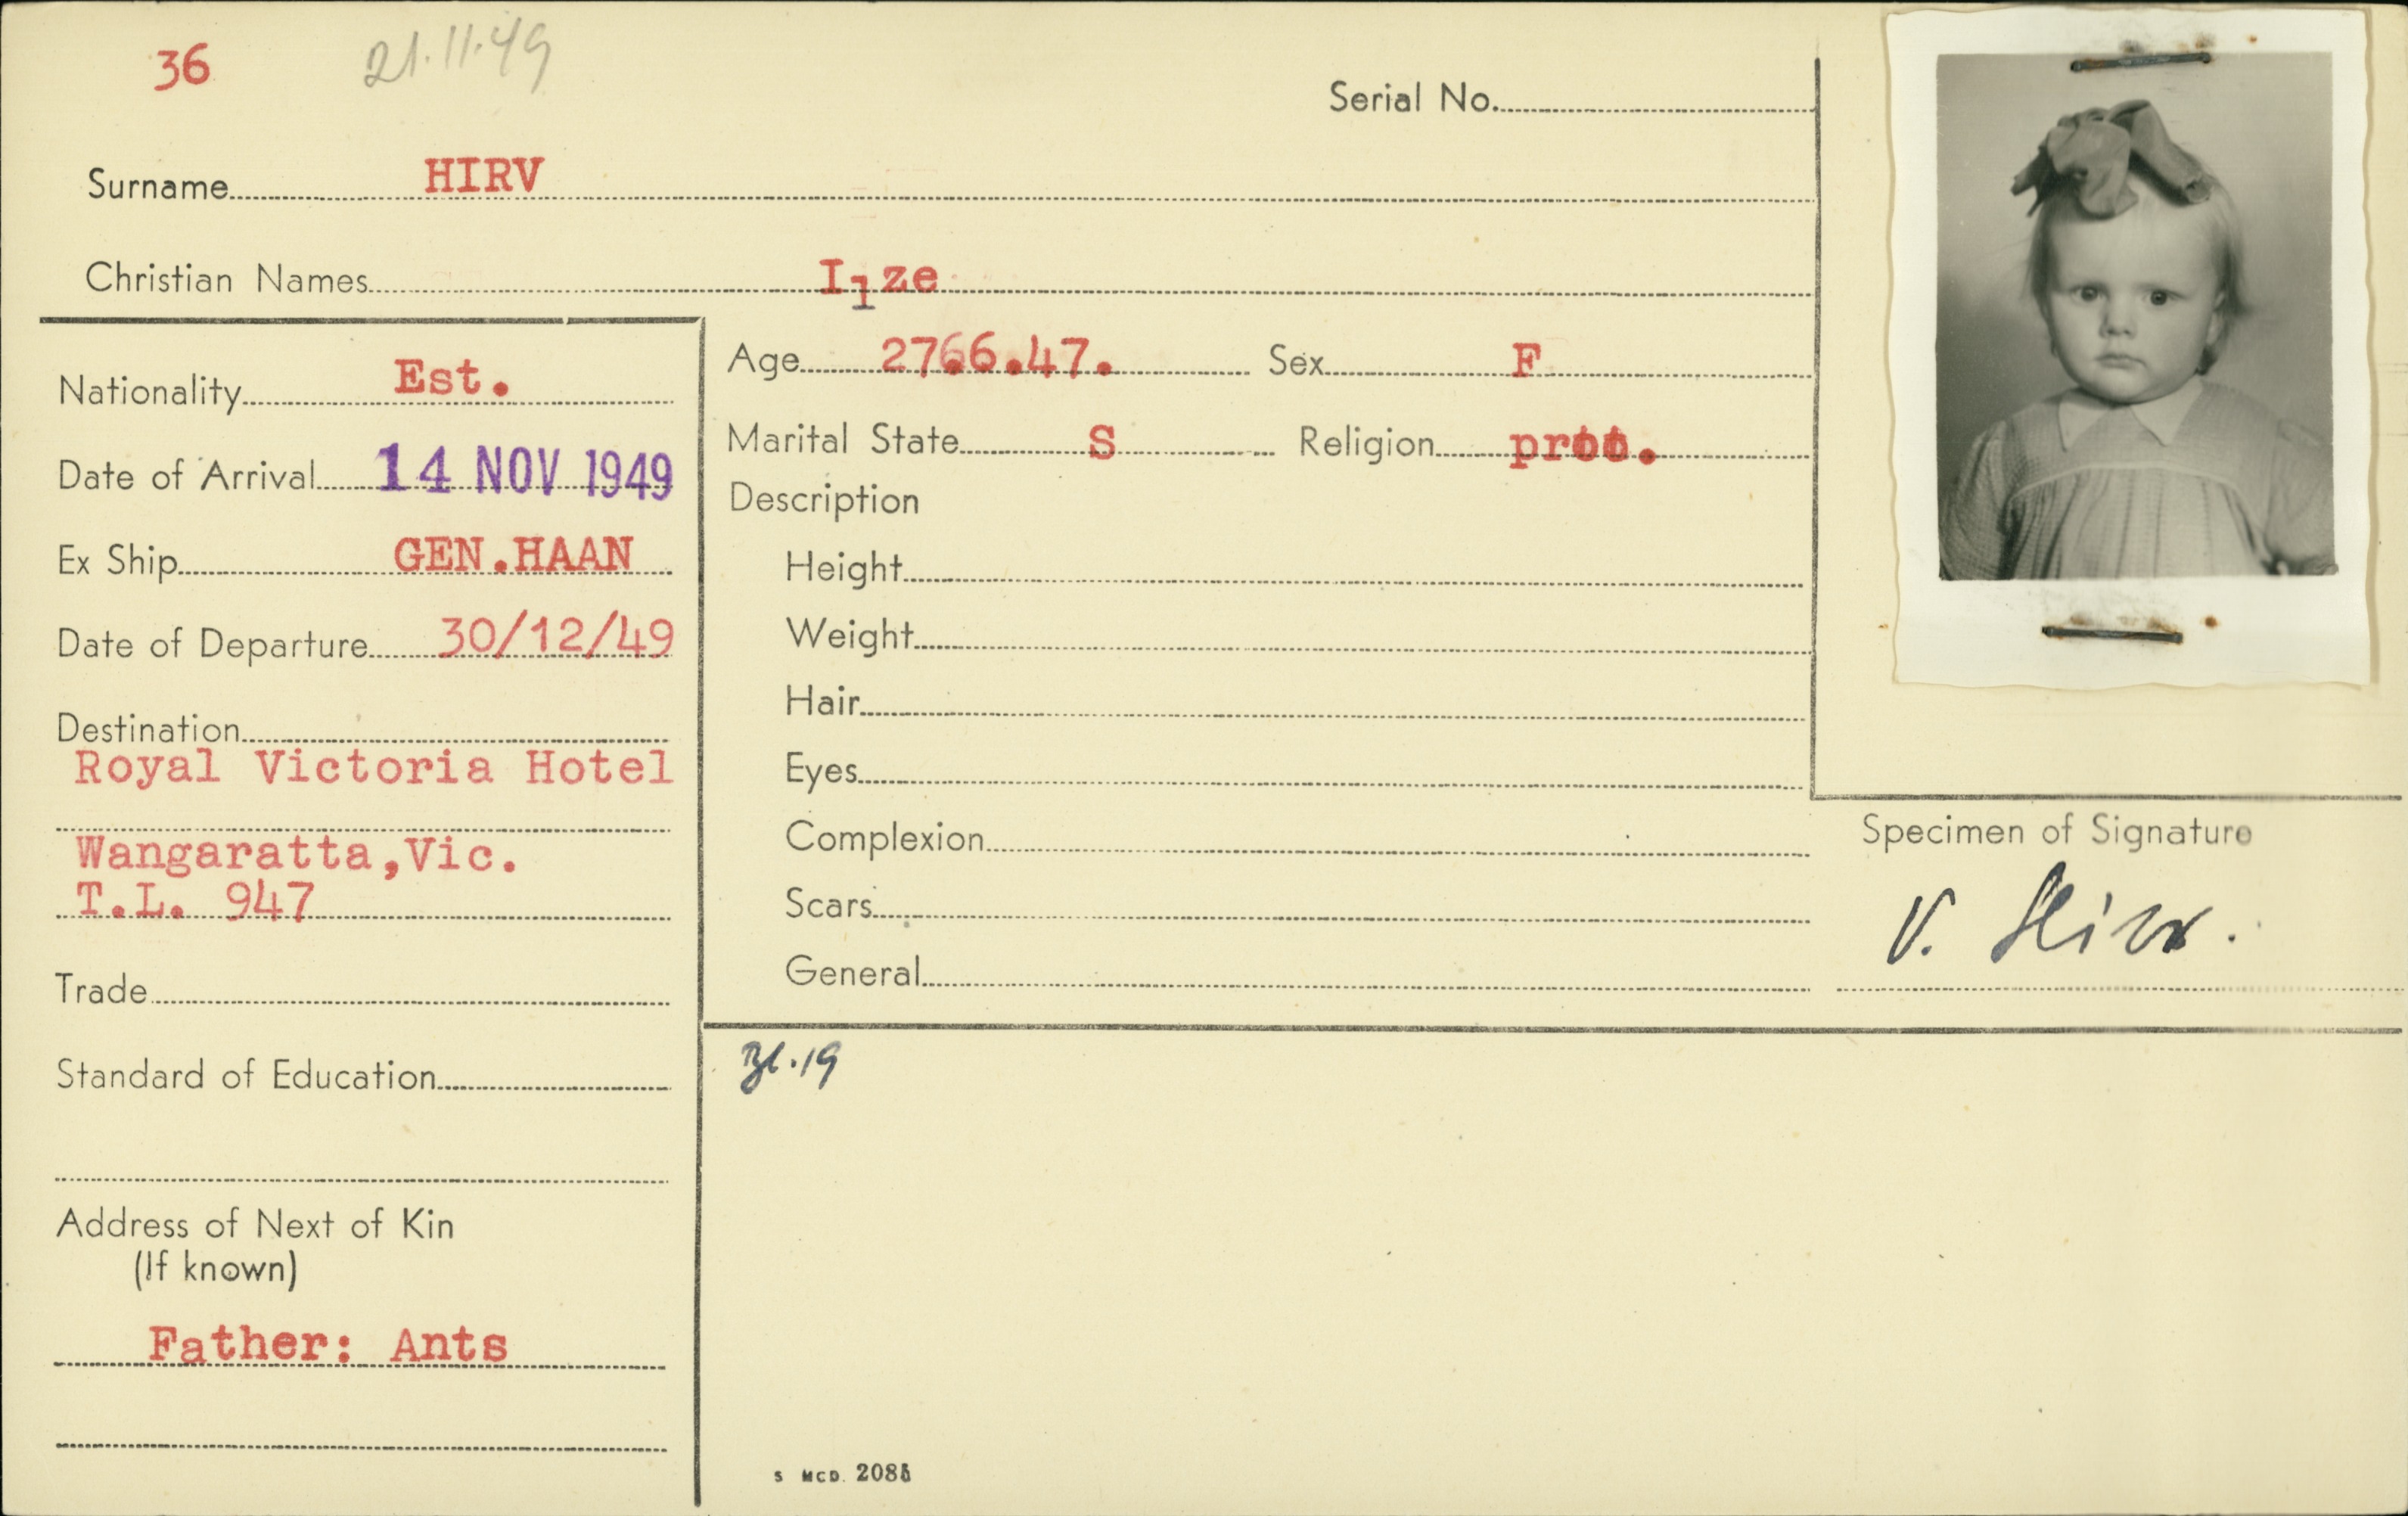 36 21.11.49
Serial No.
Surname HIRV
Christian Names Ilze
Nationality Est.
Date of Arrival 14 NOV 1949
Ex Ship GEN.HAAN
Date of Departure 30/12/49
Destination
Royal Victoria Hotel
Wangaratta,Vic.
T.L. 947
Trade
Standard of Education
Address of Next of Kin
(If known)
Father: Ants
Age 27.6.47. Sex F
Marital State S Religion prot.
Description
Height
Weight
Hair
Eyes
Complexion
Scars
General
Specimen of Signature
V. Hirv.
S MCD. 2085